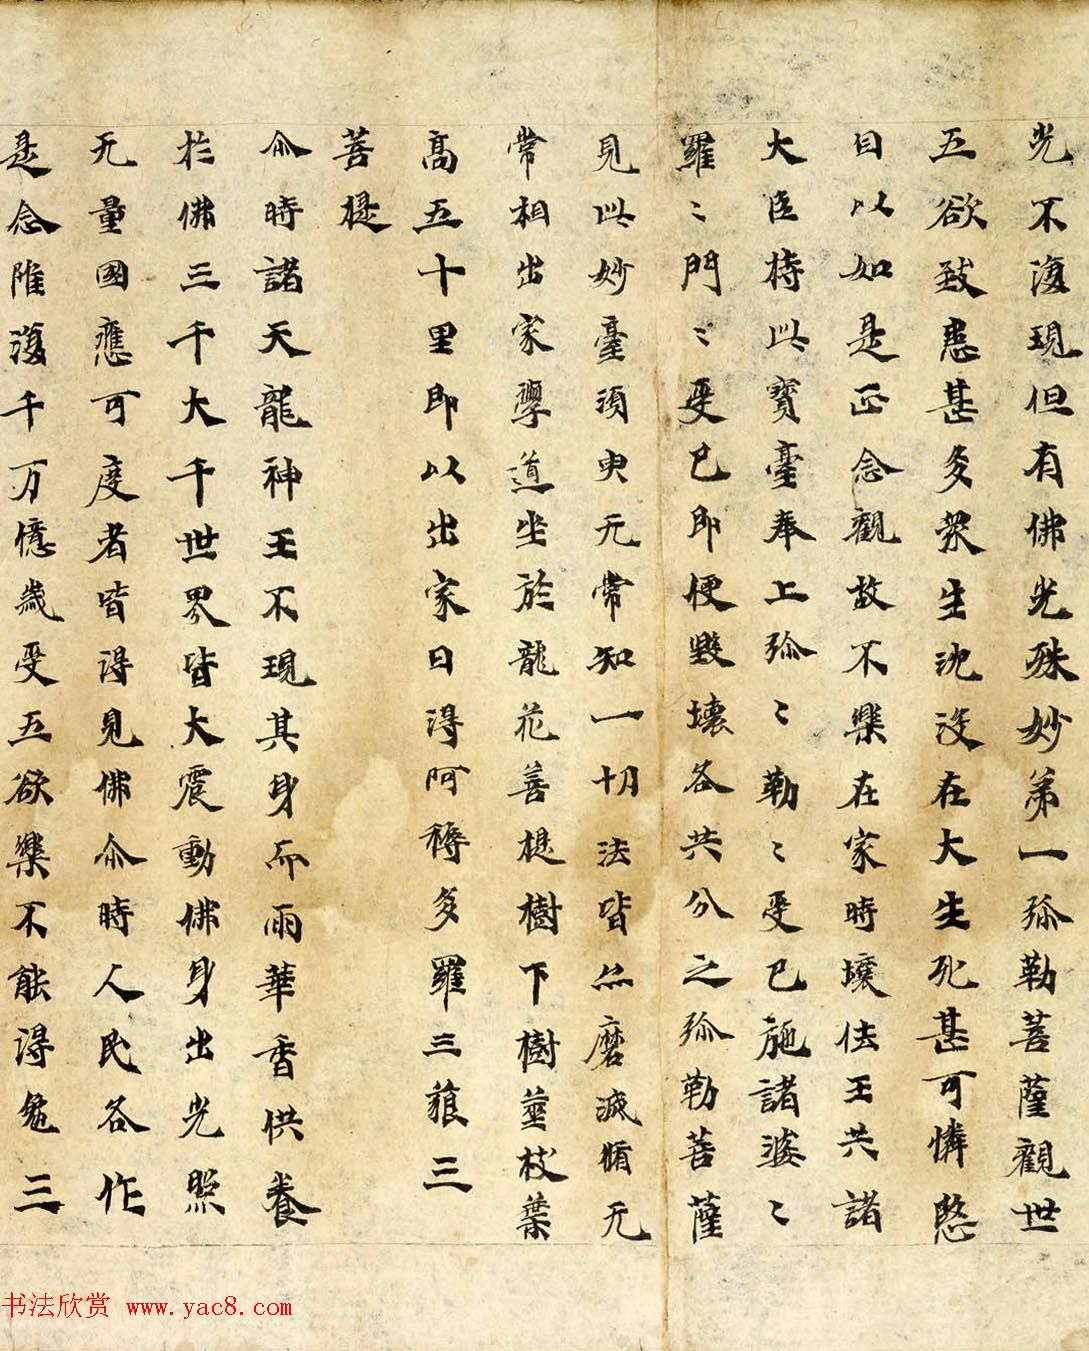 光不復現但有佛光殊妙第一弥勒菩薩觀世
五欲致患甚多衆生沈没在大生死甚可憐愍
自以如是正念觀故不樂在家時壤佉王共諸
大臣持此寶臺奉上弥〻勒〻受已施諸婆〻
羅〻門〻受已即便毀壞各共分之弥勒菩薩
見此妙臺須臾无常知一切法皆尒磨滅脩无
常相出家學道坐於龍花菩提樹下樹莖枝葉
高五十里即以出家日得阿耨多羅三藐三
菩提
尒時諸天龍神王不現其身而雨華香供養
於佛三千大千世界皆大震動佛身出光照
无量國應可度者皆得見佛尒時人民各作
是念雖復千万憶歲受五欲樂不能得免三
书法欣赏 www.yac8.com